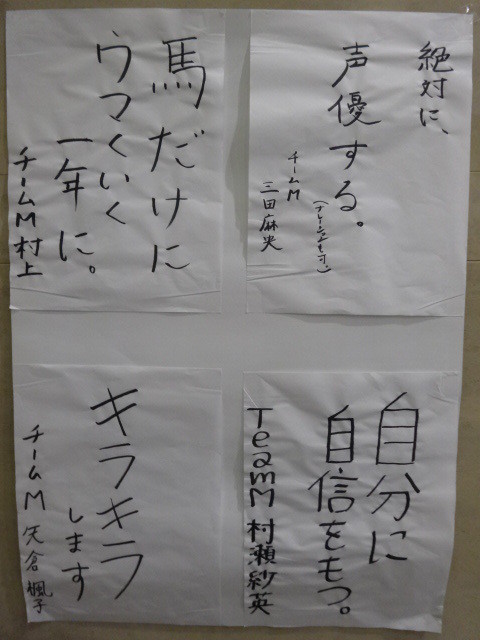 絶対に、
声優する。
(ナレーションも可)
チームM
三田麻央
馬だけに
ウマくいく
一年に。
チームM 村上
自分に
自信をもつ。
TeamM 村瀬紗英
キラキラ
します
チームM 矢倉楓子